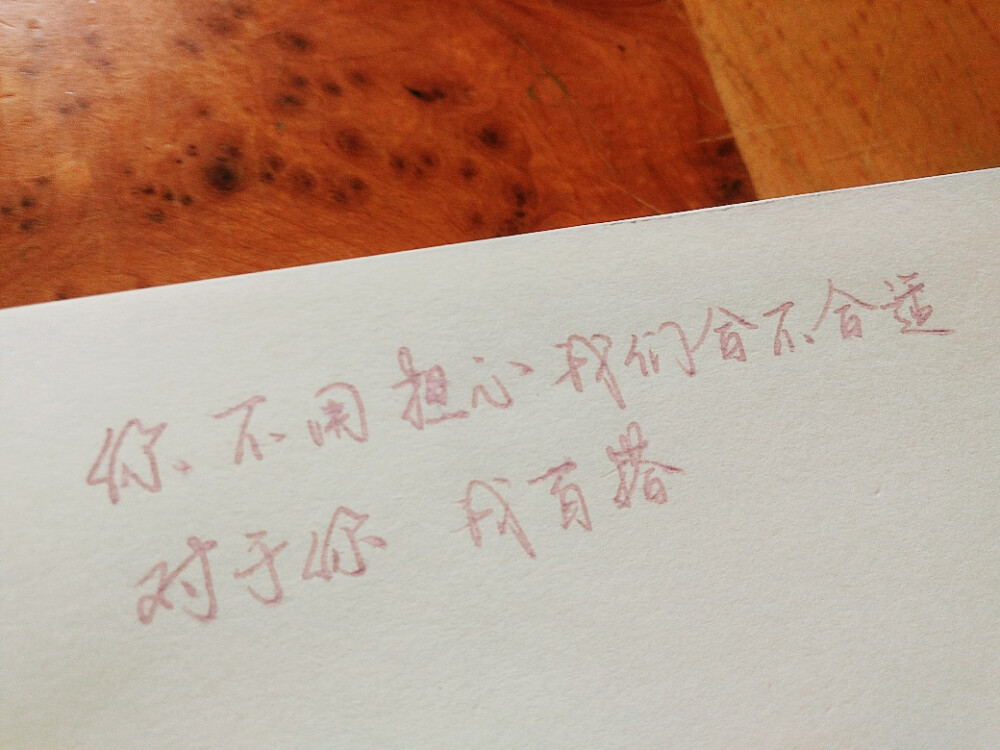 你不用担心我们合不合适
对于你 我百搭